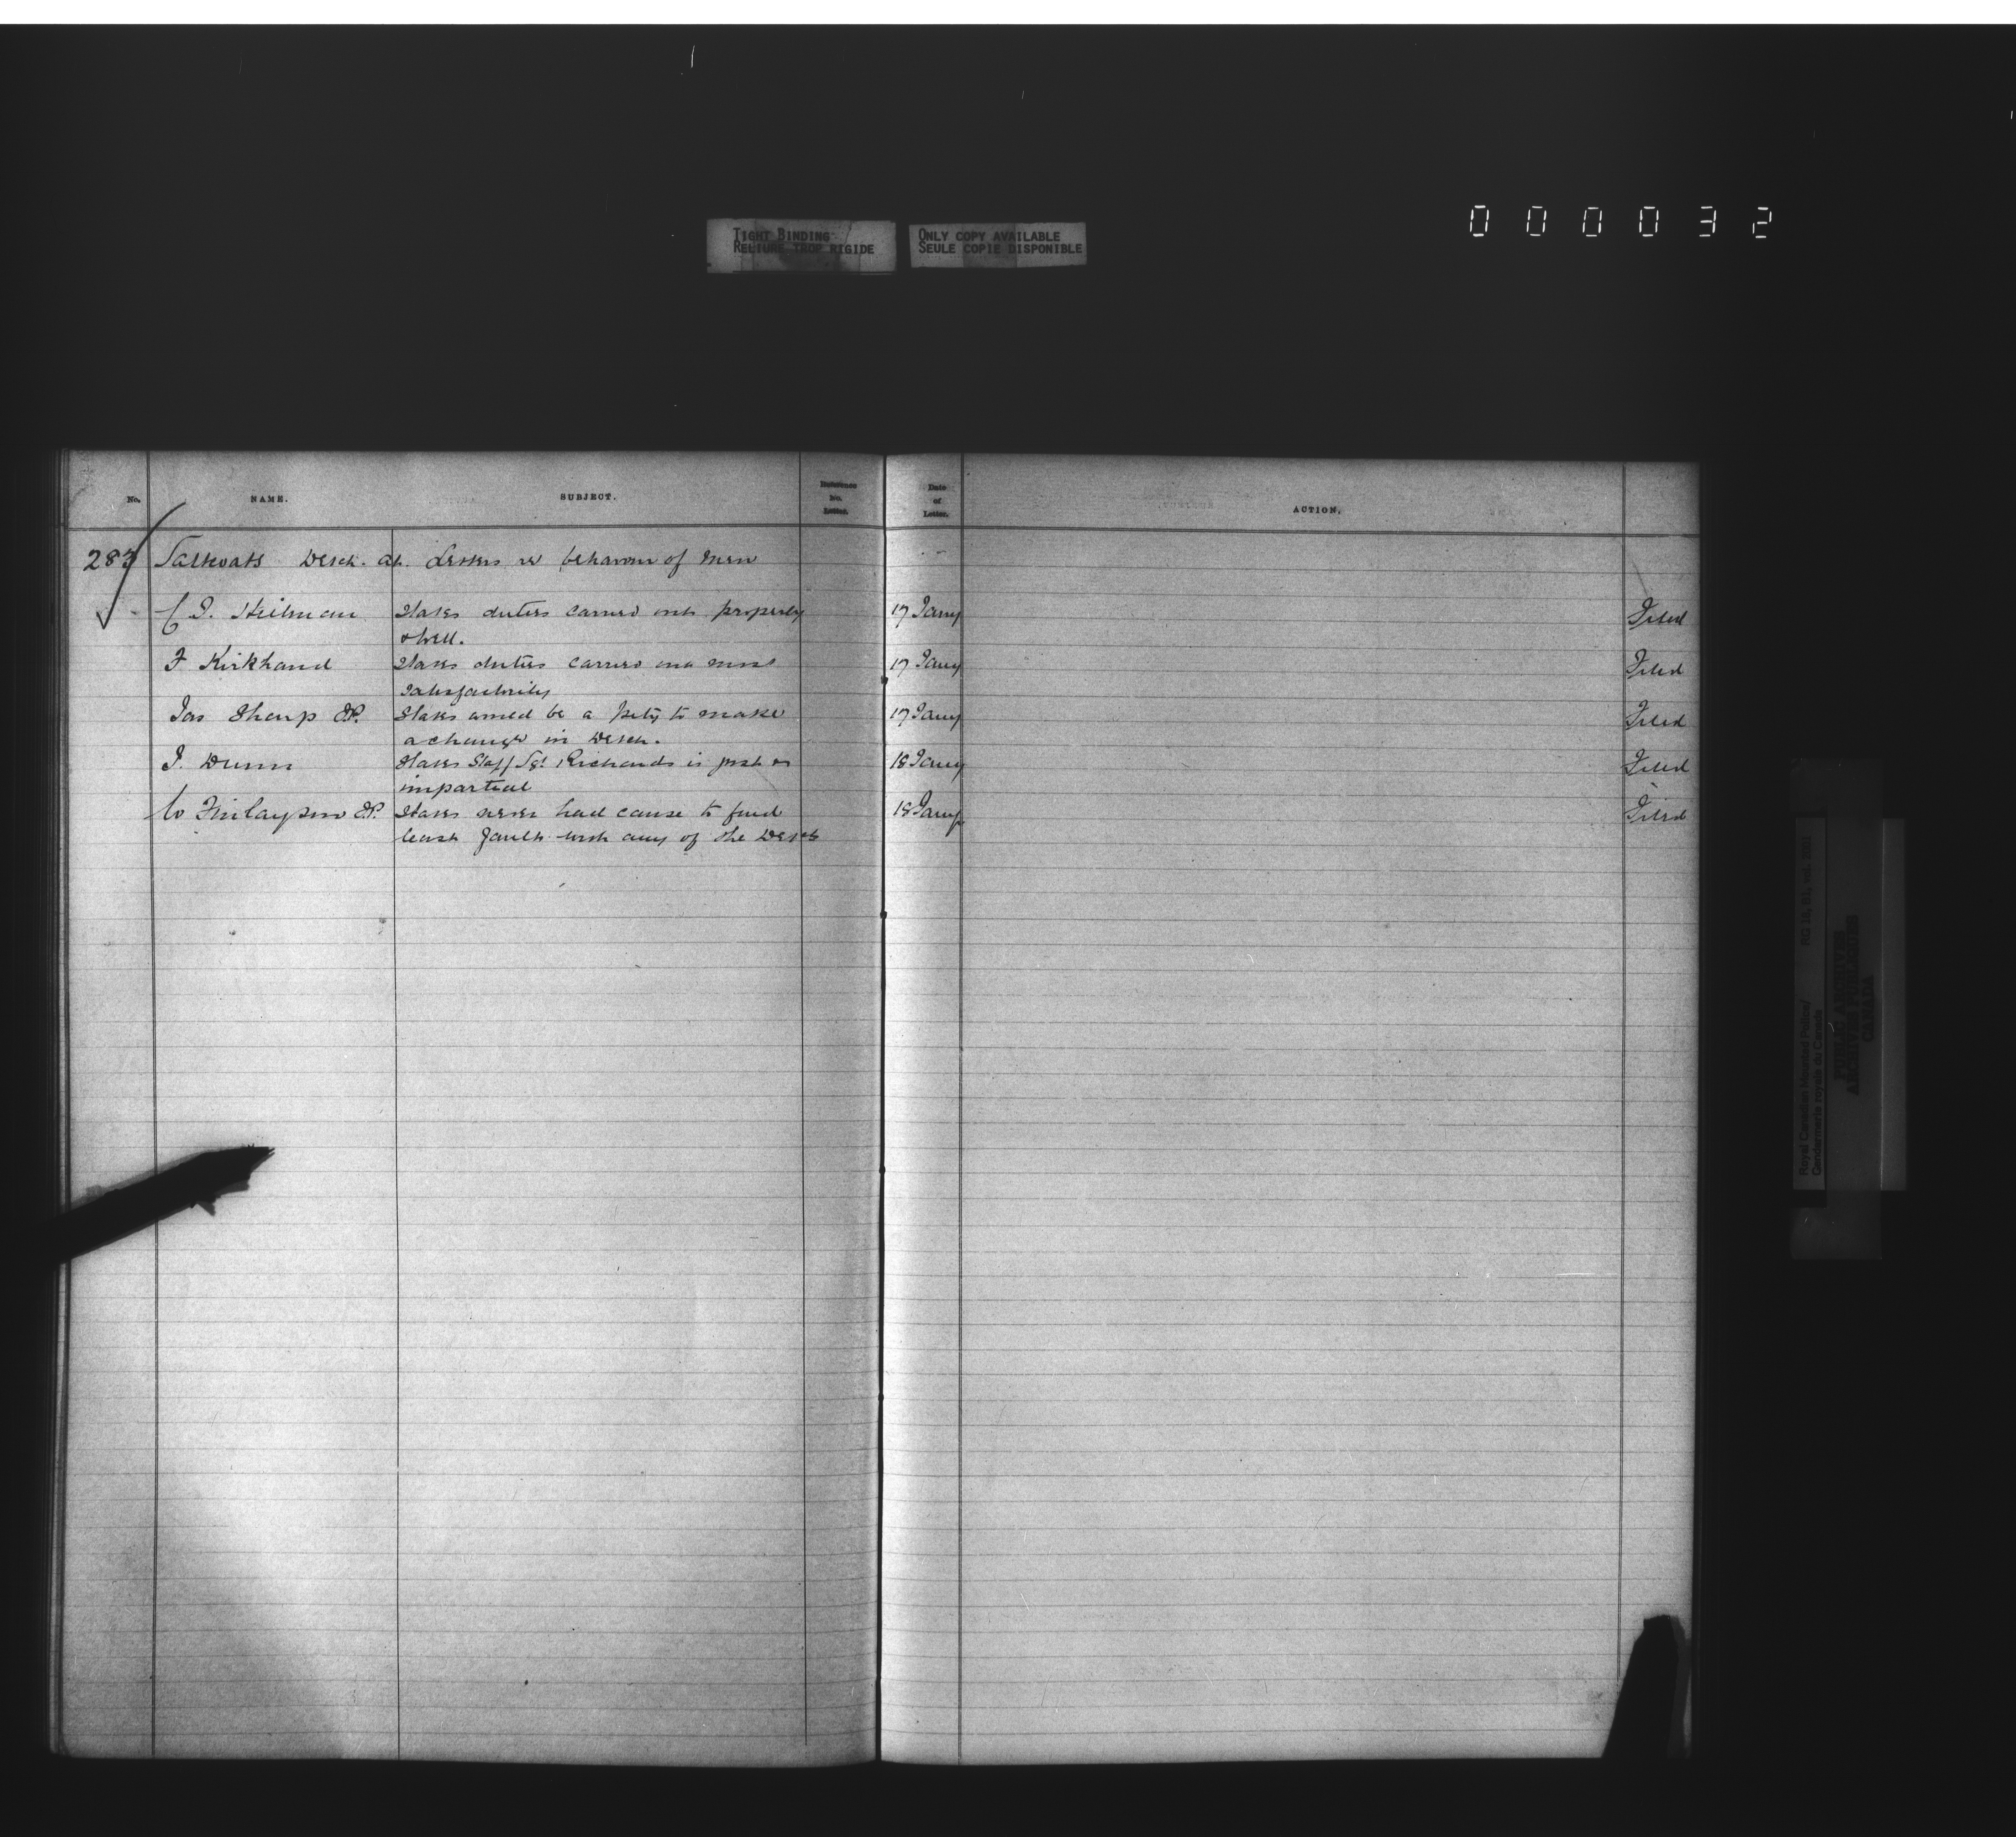 000032
TIGHT BINDING
RELIURE TROP RIGIDE
ONLY COPY AVAILABLE
SEULE COPIE DISPONIBLE
No. NAME. SUBJECT. Reference No. Letter. Date of Letter. ACTION.
283 Saltcoats Detch. at. Letters re behaviour of men
States duties carried out properly 17 Jany Filed
& well.
F Kirkham States duties carried out most 17 Jany Filed
satisfactorily
Jas Sharp J.P. States would be a pity to make 17 Jany Filed
a change in Detch.
J. Dunn States Staff Sgt Richards is just & 18 Jany Filed
impartial
Finlayson J.P. States never had cause to find 18 Jany Filed
least fault with any of the Detch
Royal Canadian Mounted Police/
Gendarmerie royale du Canada
RG 18,
PUBLIC ARCHIVES
ARCHIVES PUBLIQUES
CANADA